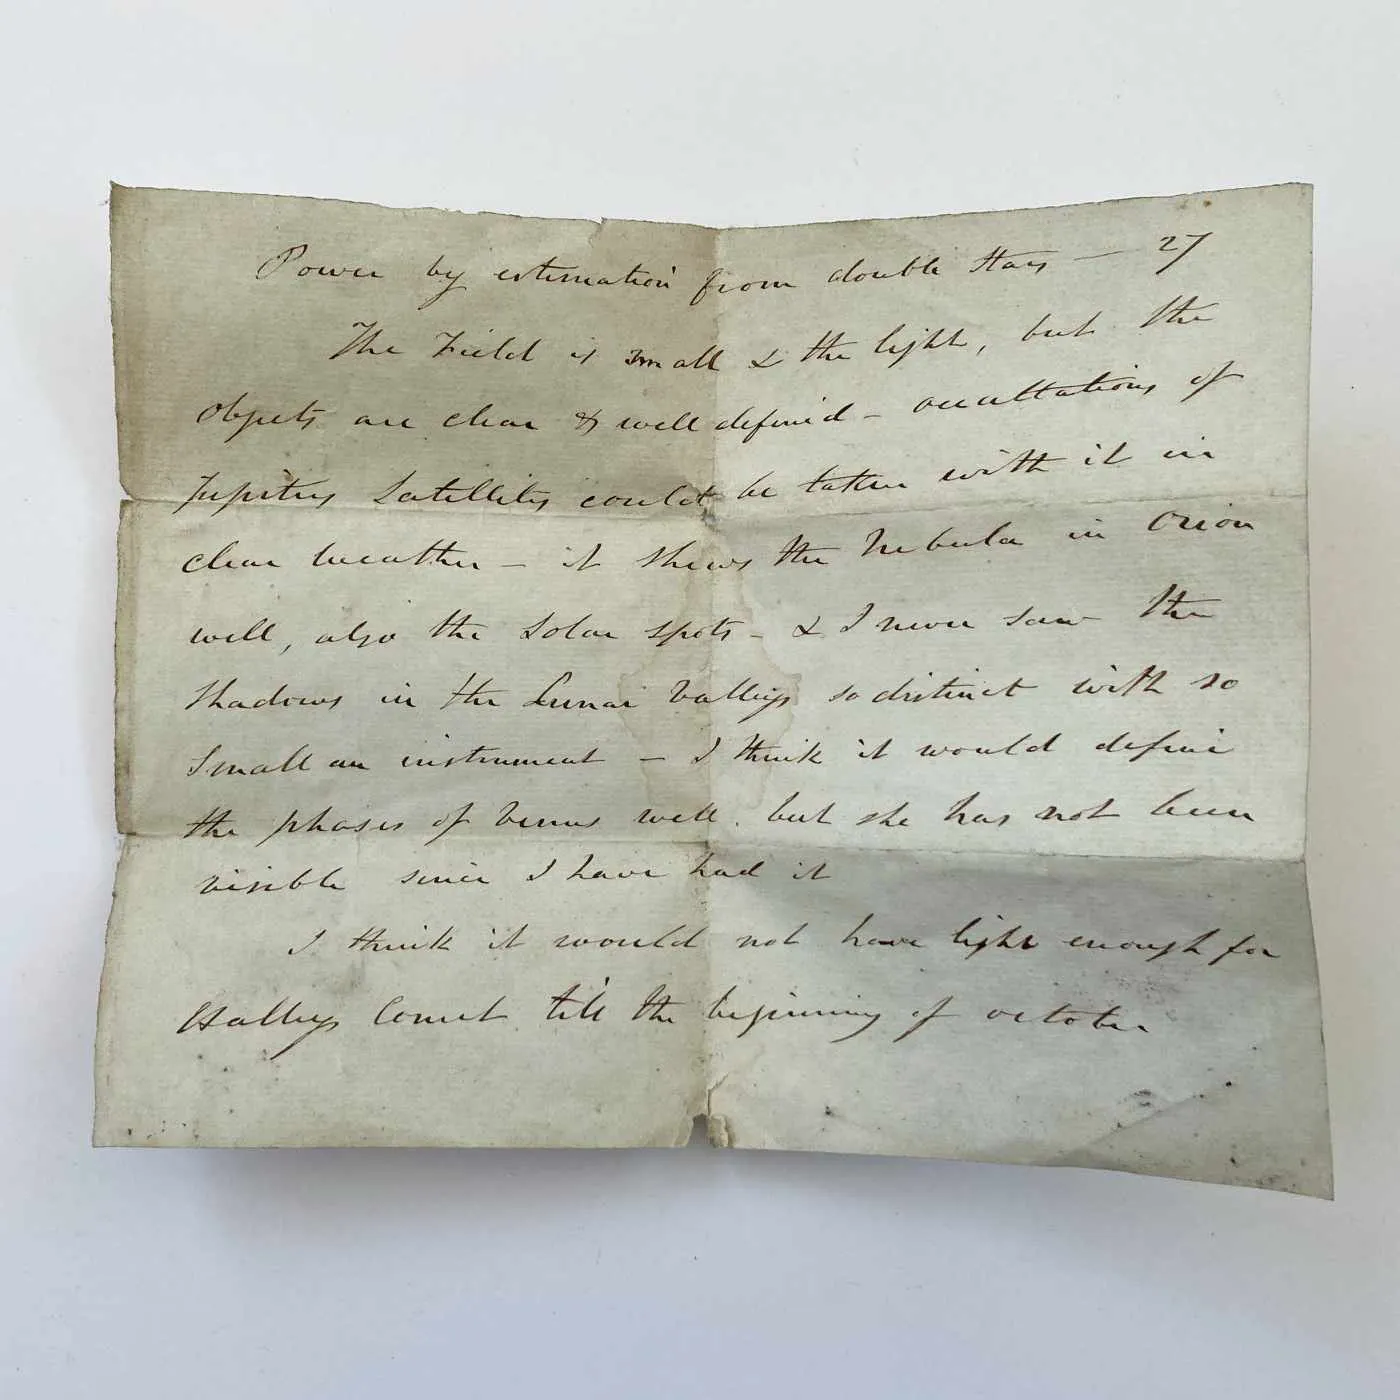 Power by estimation from double stars — 27
The Field is small & the light, but the
objects are clear & well defined — occultations of
Jupiters Satellites could be taken with it in
clear weather — it shews the Nebula in Orion
well, also the Solar spots — & I never saw the
shadows in the Lunar Valleys so distinct with so
small an instrument — I think it would define
the phases of Venus well, but she has not been
visible since I have had it
I think it would not have light enough for
Halleys Comet till the beginning of October